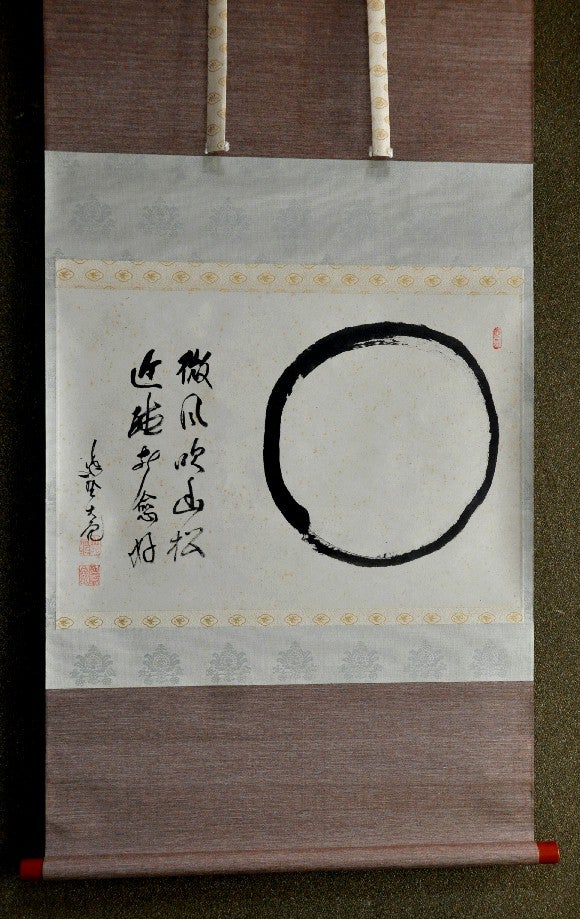 微風吹幽松
近聴声愈好